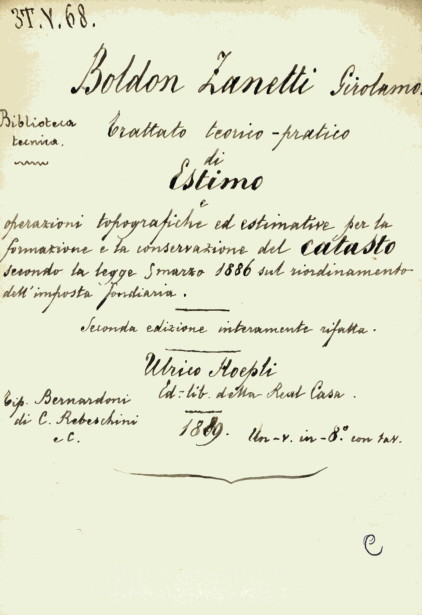 3T.V.68.
Boldon Zanetti Girolamo.
Biblioteca
tecnica.
Trattato teorico-pratico
di
Estimo
e
operazioni topografiche ed estimative per la
formazione e la conservazione del catasto
secondo la legge 1 marzo 1886 sul riordinamento
dell'imposta fondiaria.
Seconda edizione interamente rifatta.
Ulrico Hoepli
Ed-lib. della Real Casa.
Tip. Bernardoni
di C. Rebeschini
e C.
1889.
Un-v. in-8.º con tav.
C